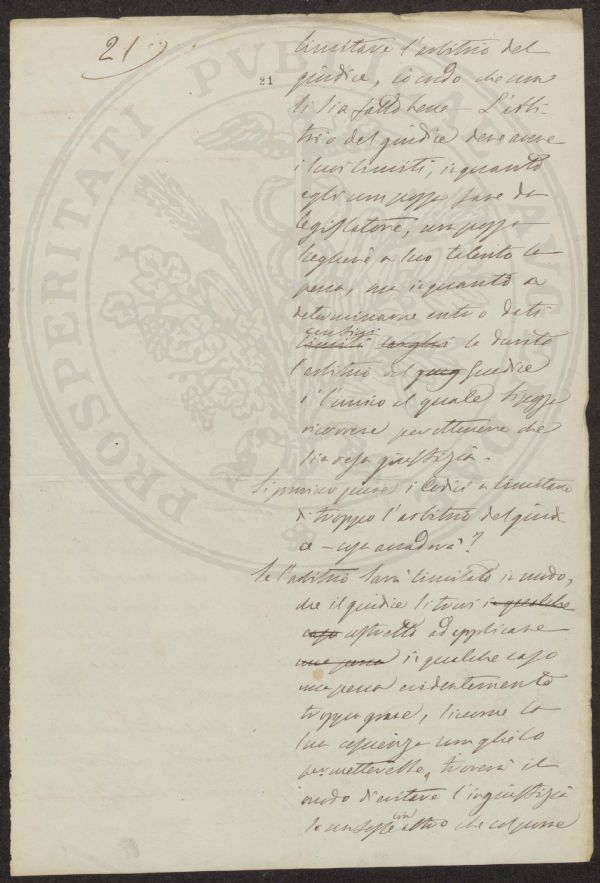 21
21
limitare l'arbitrio del
giudice, io credo che non
si sia fatto bene – L'arbi-
trio del giudice deve avere
i suoi limiti, in quanto
egli non possa fare da
legislatore, non possa
scegliere a suo talento la
pena, ma in quanto a
determinarne entro dati
confini
limiti larghi la durata
l'arbitrio del giudice
è l'unico al quale si possa
ricorrere per ottenere che
sia resa giustizia.
Si provino pure i Codici a limitare
di troppo l'arbitrio del giudi-
ce – cosa accadrà?
Se l'arbitrio sarà limitato in modo,
che il giudice si trovi in qualche
caso costretto ad applicare
una pena in qualche caso
una pena evidentemente
troppo grave, siccome la
sua coscienza non glielo
permetterebbe, troverà il
modo di evitare l'ingiustizia
se non fosse con
altro che col porre
PROSPERITATI PVBLICAE AVGENDAE